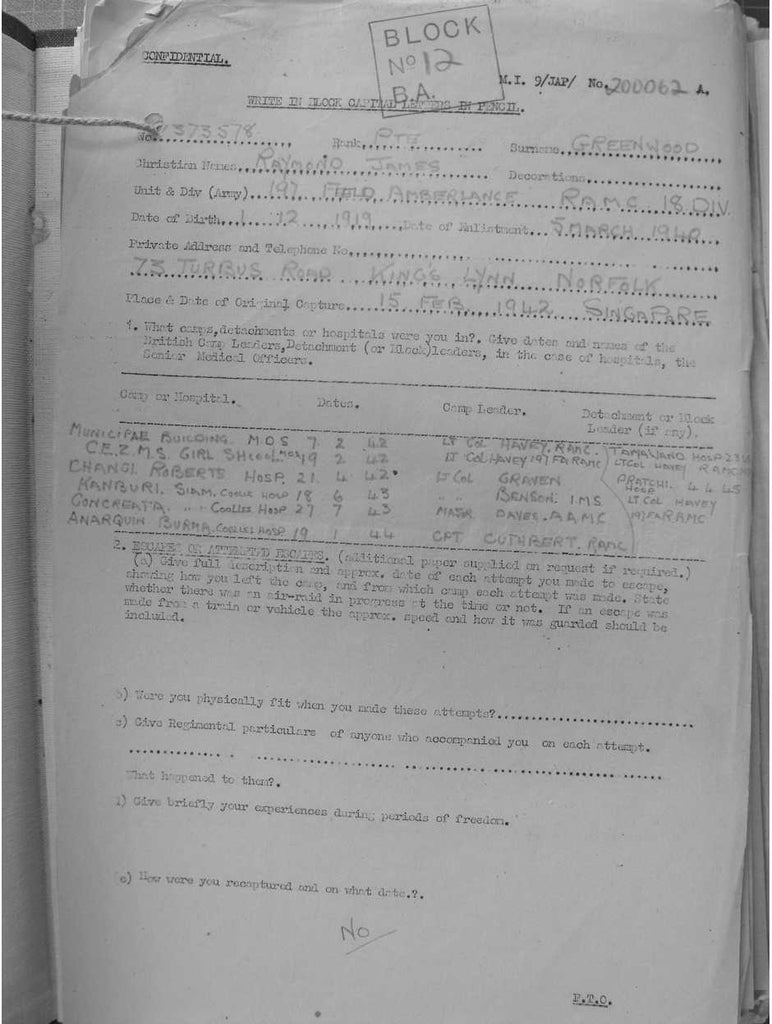 BLOCK
No 12
B.A.
CONFIDENTIAL.
M.I. 9/JAP/ No. 200062 A.
WRITE IN BLOCK CAPITAL LETTERS IN PENCIL.
No. 7373578 Rank, PTE Surname, GREENWOOD
Christian Names, RAYMOND JAMES Decorations
Unit & Div (Army) 197 FIELD AMBERLANCE R.A.M.C. 18 DIV
Date of Birth, 1 12 1919 Date of Enlistment, 5 MARCH 1940
Private Address and Telephone No.
73 TURBUS ROAD KING'S LYNN NORFOLK
Place & Date of Original Capture 15 FEB 1942 SINGAPARE
1. What camps,detachments or hospitals were you in?. Give dates and names of the
British Camp Leaders,Detachment (or Block)leaders, in the case of hospitals, the
Senior Medical Officers.
Camp or Hospital. Dates. Camp Leader. Detachment or Block
Leader (if any).
MUNICIPAL BUILDING M.O.S 7 2 42 LT COL HAVEY. RAMC. TAMAWAND HOSP
C.E.Z.M.S. GIRL 19 2 42 LT COL HAVEY 197 FA RAMC LT COL HAVEY RAMC
CHANGI ROBERTS HOSP. 21 4 42 LT COL GRAVEN PRATCHI 4 4 45
HOSP
KANBURI. SIAM. COOLIE HOSP 18 6 43 " " BENSON. I.M.S. LT COL HAVEY
CONCREATA. " " COOLIES HOSP 27 7 43 MAJR DAVES. A.A.M.C 197 FA RAMC
ANARQUIN. BURMA. COOLIES HOSP 19 1 44 CPT CUTHBERT. RAMC
2. ESCAPES OR ATTEMPTED ESCAPES. (additional paper supplied on request if required.)
(a) Give full description and approx. date of each attempt you made to escape,
showing how you left the camp, and from which camp each attempt was made. State
whether there was an air-raid in progress at the time or not. If an escape was
made from a train or vehicle the approx. speed and how it was guarded should be
included.
b) Were you physically fit when you made these attempts?
c) Give Regimental particulars of anyone who accompanied you on each attempt.
What happened to them?.
d) Give briefly your experiences during periods of freedom.
e) How were you recaptured and on what date.?.
NO
P.T.O.